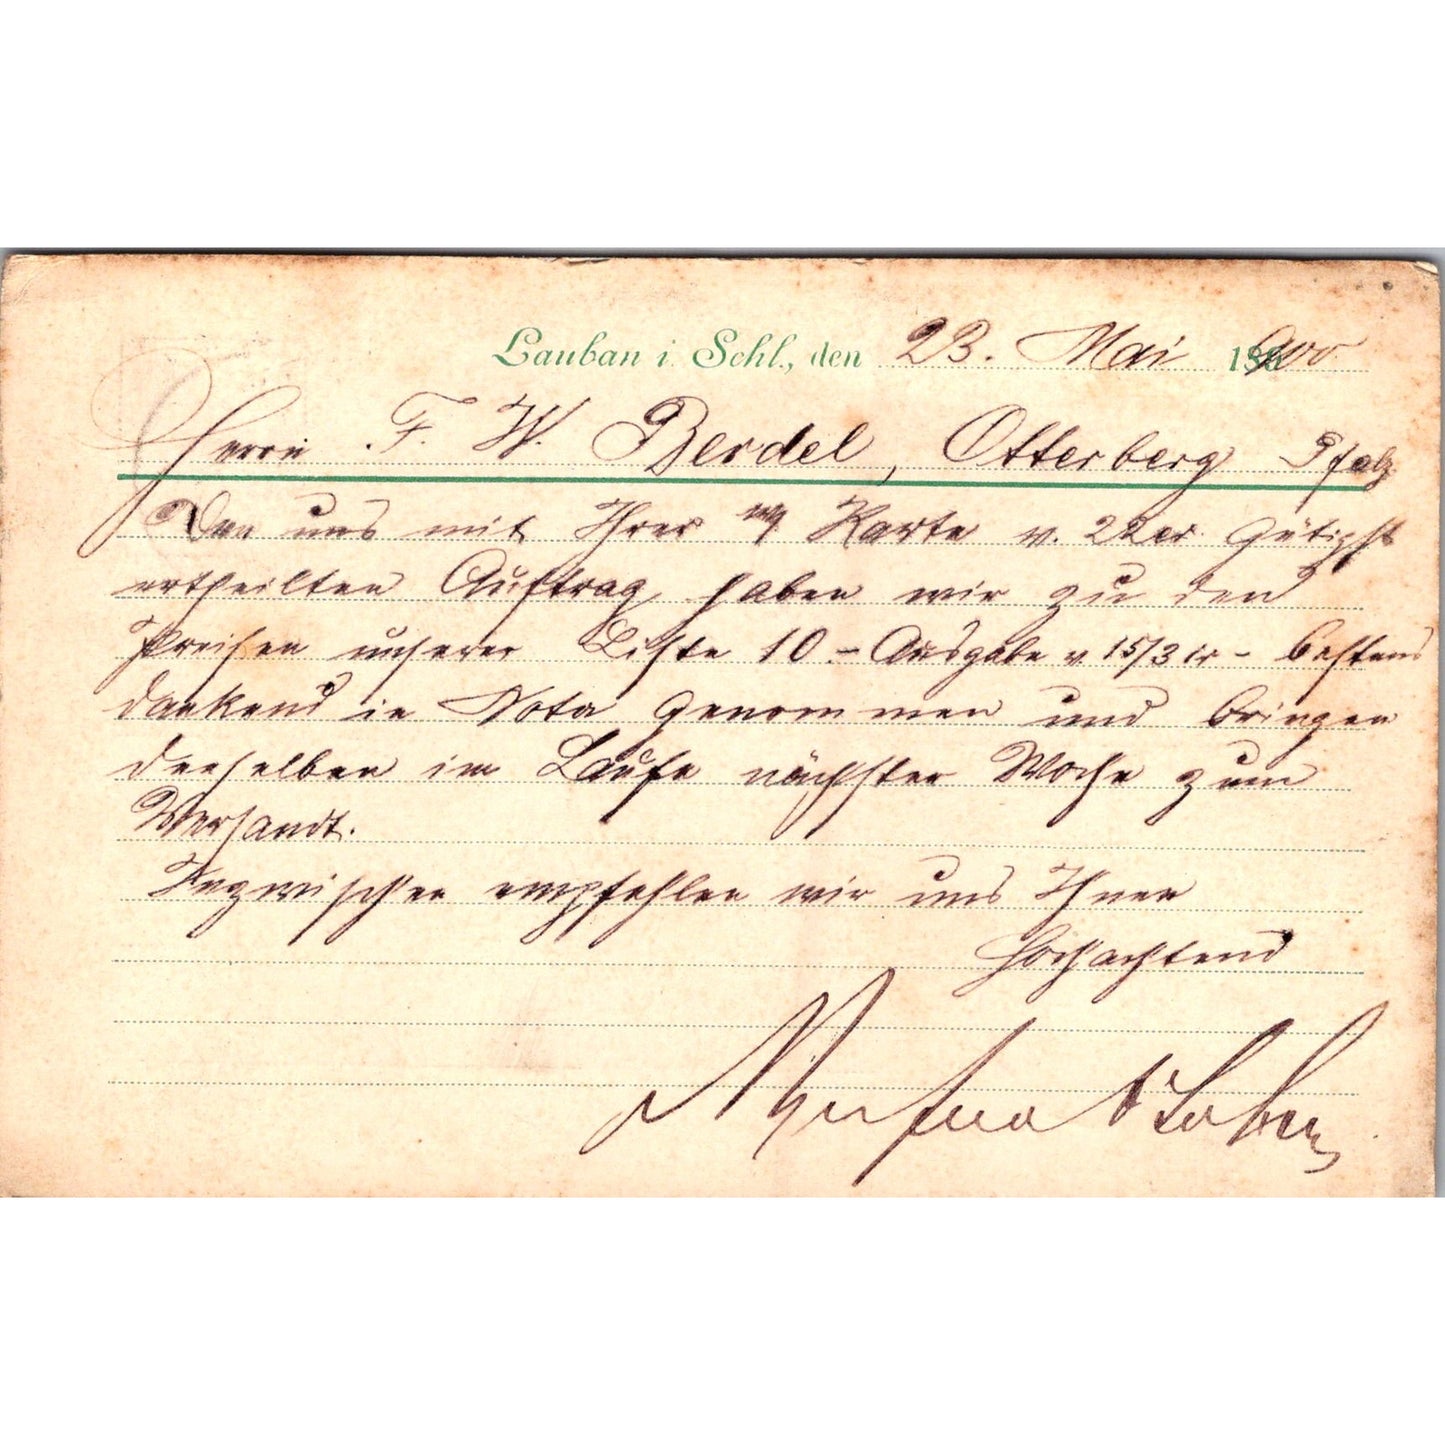 Lauban i. Schl., den 23. Mai 1900
Herrn F. W. Berdel, Otterberg Pfalz
Den uns mit Ihrer Karte v. 22er gütigst
ertheilten Auftrag haben wir zu den
Preisen unserer Liste 10 - Ausgabe v. 15/3 cr - bestens
dankend in Nota genommen und bringen
denselben im Laufe nächster Woche zum
Versandt.
Inzwischen empfehlen wir uns Ihnen
Hochachtend